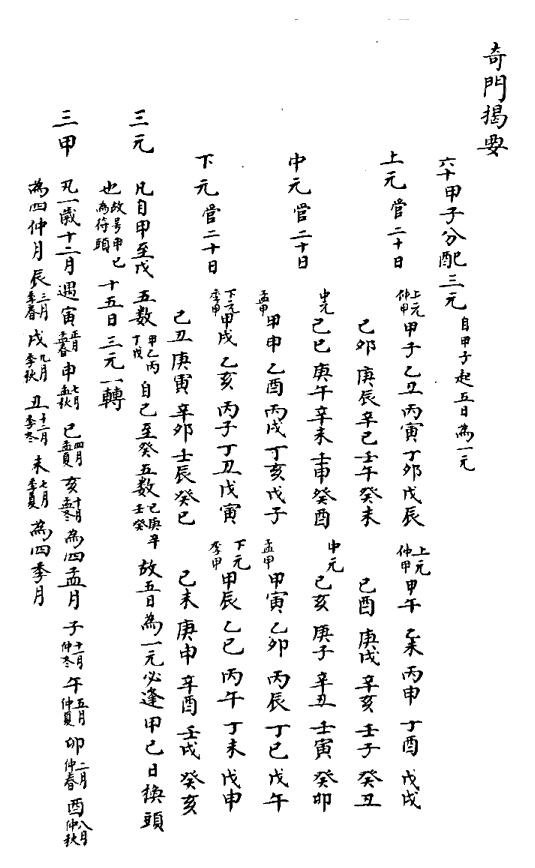 奇門揭要
六十甲子分配三元 自甲子起五日為一元
上元管二十日 上元仲甲 甲子乙丑丙寅丁卯戊辰 上元仲甲 甲午乙未丙申丁酉戊戌
己卯庚辰辛巳壬午癸未 己酉庚戌辛亥壬子癸丑
中元管二十日 中元 己巳庚午辛未壬申癸酉 中元 己亥庚子辛丑壬寅癸卯
孟甲 甲申乙酉丙戌丁亥戊子 孟甲 甲寅乙卯丙辰丁巳戊午
下元管二十日 下元季甲 甲戌乙亥丙子丁丑戊寅 下元季甲 甲辰乙巳丙午丁未戊申
己丑庚寅辛卯壬辰癸巳 己未庚申辛酉壬戌癸亥
三元 凡自甲至戊五數甲乙丙丁戊自己至癸五數己庚辛壬癸故五日為一元必逢甲己日換頭
也故号甲己為符頭十五日三元一轉
三甲 凡一歲十二月遇寅正月孟春申七月孟秋巳四月孟夏亥十月孟冬為四孟月子十一月仲冬午五月仲夏卯二月仲春酉八月仲秋
為四仲月辰三月季春戌九月季秋丑十二月季冬未七月季夏為四季月